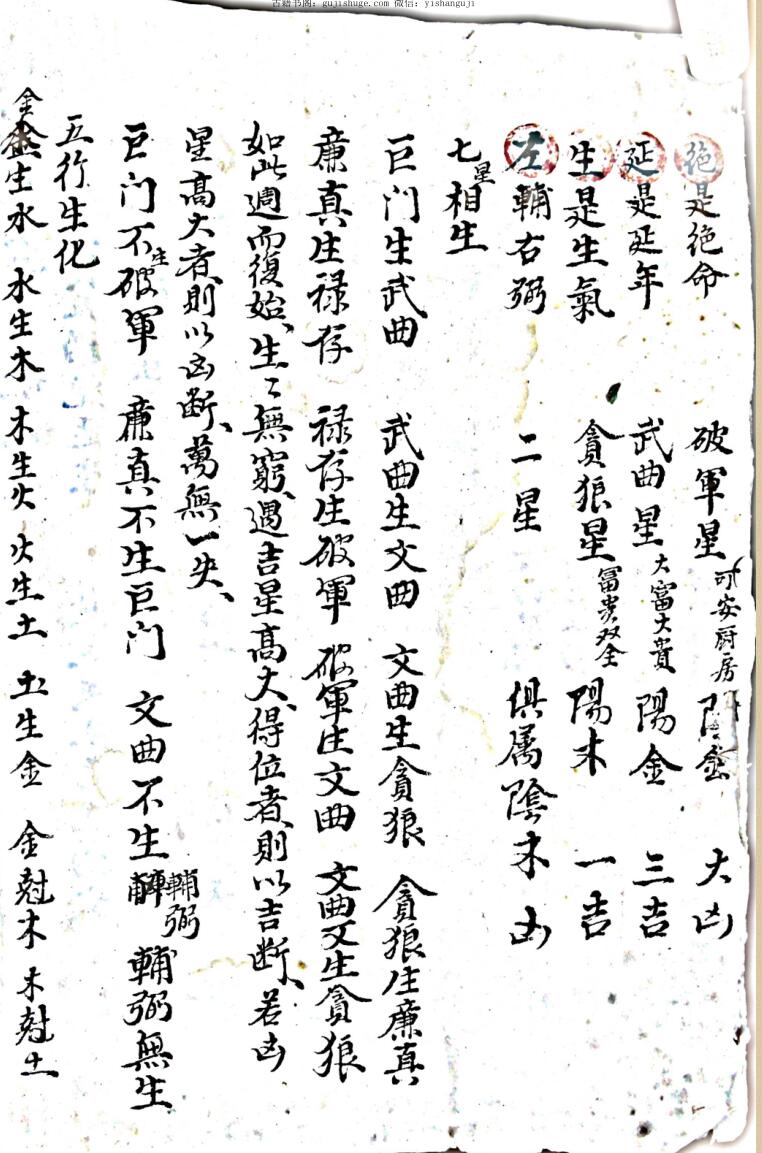 古籍书阁：gujishuge.com 微信：yishanguji
絶是绝命 破軍星 可安厨房 陰金 大凶
延是延年 武曲星 大富大貴 陽金 三吉
生是生氣 貪狼星 冨贵双全 陽木 一吉
左輔右弼 二星 俱属陰木 凶
七星相生
巨门生武曲 武曲生文曲 文曲生貪狼 貪狼生廉真
廉真生禄存 禄存生破軍 破軍生文曲 文曲又生貪狼
如此週而復始、生〻無窮、遇吉星髙大、得位者、則以吉断、若凶
星髙大者、則以凶断、萬無一失、
巨门不生破軍 廉真不生巨门 文曲不生輔弼 輔弼無生
五行生化
金生水 水生木 木生火 火生土 土生金 金尅木 木尅土